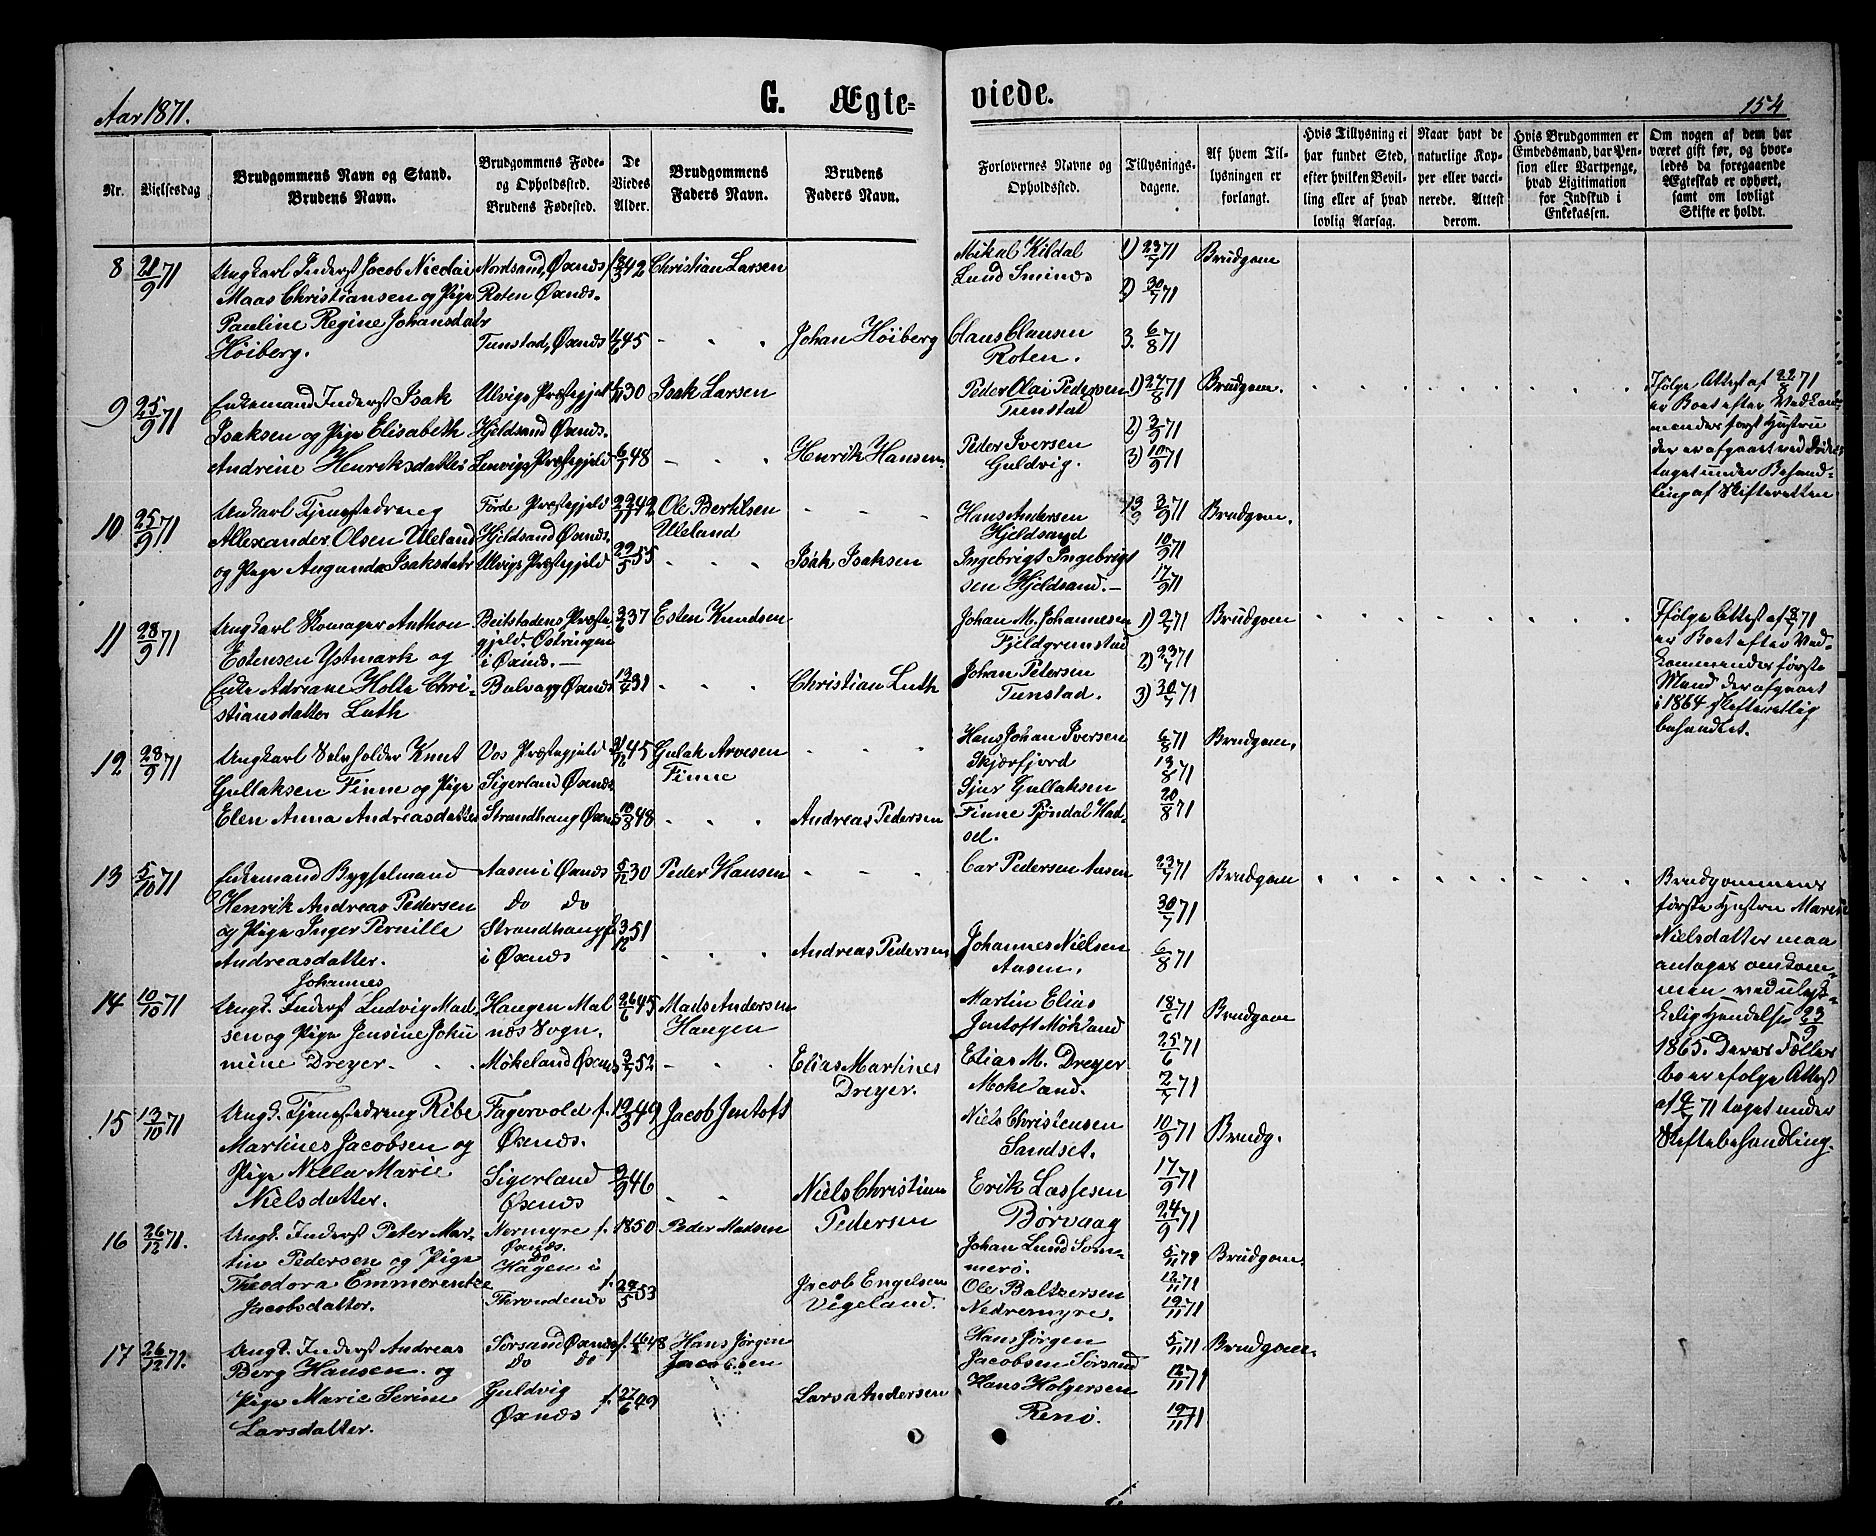 Aar 1871.
G. Ægte-
viede.
154
Nr.
Vielsesdag
Brudgommens Navn og Stand.
Brudens Navn.
Brudgommens Føde-
og Opholdssted.
Brudens Fødested.
De
Viedes
Alder.
Brudgommens
Faders Navn.
Brudens
Faders Navn.
Forlovernes Navne og
Opholdssted.
Tillysnings-
dagene.
Af hvem Til-
lysningen er
forlangt.
Hvis Tillysning ei
har fundet Sted,
efter hvilken Bevil-
ling eller af hvad
lovlig Aarsag.
Naar havt de
naturlige Kop-
per eller vacci-
nerede. Attest
derom.
Hvis Brudgommen er
Embedsmand, har Pen-
sion eller Vartpenge,
hvad Ligitimation
for Indskud i
Enkekassen.
Om nogen af dem har
været gift før, og hvor-
ledes da foregaaende
Ægteskab er ophørt,
samt om lovligt
Skifte er holdt.
8
21/9 71
Ungkarl Inderst Jacob Nicolai
Maas Christiansen og Pige
Pauline Regine Johansdatr
Høiberg.
Nordsand, Øxnes
Roten Øxnds.
Tunstad, Øxnds
42
45
Christian Larsen
Johan Høiberg
Mikal Kildal
Lund Sminæs
Claus Clausen
Roten.
1) 23/7 71
2) 30/7 71
3. 6/8 71
Brudgom
9
25/9 71
Enkemand Inderst Isak
Isaksen og Pige Elisabeth
Andrine Henriksdatter
Ulvigs Præstegjeld
Hjeldsand Øxnds.
Lenvigs Præstegjeld
30
6/7 48
Isak Larsen
Henrik Hansen
Peder Olai Pedersen
Tunstad
Peder Iversen
Guldvig.
1) 27/8 71
2) 3/9 71
3) 10/9 71
Brudgom.
Ifølge Attest af 22/8 71
er Boet efter Vedkom-
mendes først Hustru
der er afgaaet ved Døden
taget under Behand-
ling af Skifteretten
10
25/9 71
Ungkarl Tjenestedreng
Allexander Olsen Uleland
og Pige Augunda Isaksdatr
Førde Præstegjeld
Hjeldsand Øxnds.
Ulvigs Præstegjeld
42
29/5 55
Ole Bertilsen
Uleland
Isak Isaksen
Hans Andersen
Hjeldsand
Ingebrigt Ingebrigt
sen Hjeldsand.
3/9 71
10/9 71
17/9 71
Brudgom.
11
28/9 71
Ungkarl Skomager Anthon
Estensen Ystmark og
Enke Adriane Holte Chri-
stiansdatter Luth
Beitstadens Præste-
gjeld. Østringen
i Øxnds.
Balvaag Øxnds
3/6 37
13/4 31
Esten Knudsen
Christian Luth
Johan M. Johannesen
Fjeldgrunstad
Johan Petersen
Tunstad.
1) 2/7 71
2) 23/7 71
3) 30/7 71
Brudgom
Ifølge Attest af 8/7 71
er Boet efter Ved-
kommendes første
Mand der afgaaet
i 1864 skifteretlig
behandlet.
12
28/9 71
Ungkarl Selvholder Knut
Gullaksen Finne og Pige
Elen Anna Andreasdatter
Vos Præstegjeld
Sigerland Øxnds
Strandhaug Øxnds
45
10/8 48
Gulak Arvesen
Finne
Andreas Pedersen
Hans Johan Iversen
Skjærfjord
Sjur Gullaksen
Finne Tjøndal Had-
sel.
6/8 71
13/8 71
20/8 71
Brudgom.
13
5/10 71
Enkemand Bygselmand
Henrik Andreas Pedersen
og Pige Inger Pernille
Andreasdatter.
Aasen i Øxnds
do do
Strandhaug
i Øxnds
5/12 30
3/12 51
Peder Hansen
Andreas Pedersen
Car Pedersen Aasen
Johannes Nielsen
Aasen.
23/7 71
30/7 71
6/8 71
Brudgom
Brudgommens
første Hustru Maren
Nielsdatter maa
antages omkom-
men ved ulyk-
kelig Hændelse 23/9
1865. Deres Fælles
bo er efølge Attest
af 9/7 71 taget under
Skiftebehandling.
14
10/10 71
Johannes
Ungk. Inderst Ludvig Mad-
sen og Pige Jensine Joku
mine Dreyer.
Haugen Mal
nes Sogn.
Møkeland Øxnds
26/6 45
3/7 52
Mads Andersen
Haugen
Elias Martines
Dreyer.
Martin Elias
Jentoft Møkland
Elias M. Dreyer
Mokeland.
18/6 71
25/6 71
2/7 71
Brudgom
15
13/10 71
Ungk. Tjenestedreng Ribe
Martines Jacobsen og
Pige Nella Marie
Nielsdatter.
Fagervold f.
Øxnds.
Sigerland
Øxnds
19/3 49
46
Jacob Jentoft
Niels Christian
Pedersen
Niels Christensen
Sandset.
Erik Lassesen
Børvaag
10/9 71
17/9 71
24/9 71
Brudg.
16
26/12 71.
Ungk. Inderst Peter Mar-
tin Pedersen og Pige
Theodora Emmerentze
Jacobsdatter.
Nermyre f.
Øxnds.
do
Hagen i
Throndenæs f.
1850
53
Peder Madsen
Jacob Engelsen
Vigeland.
Johan Lund Som-
merø.
Ole Baltzersen
Nedremyre.
5/11 71
12/11 71
19/11 71
Brudgom.
17
26/12 71.
Ungk. Inderst Andreas
Berg Hansen. og
Pige Marie Serine
Larsdatter.
Sørsand Øxnds
do do
Guldvig f.
Øxnds
48
27/6 49
Hans Jørgen
Jacobsen
Lars Andersen
Hans Jørgen
Jacobsen Sørsand
Hans Holgersen
Renø.
5/11 71
12/11 71
19/11 71
Brudgom.